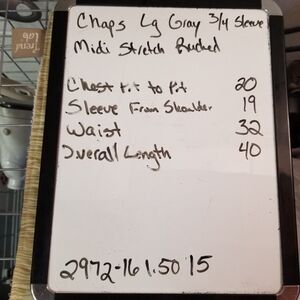 Trend Lab
Chaps Lg Gray 3/4 Sleeve
Midi Stretch Ruched
Chest Pit to Pit 20
Sleeve From Shoulder 19
Waist 32
Overall Length 40
2972-16 1.50 15